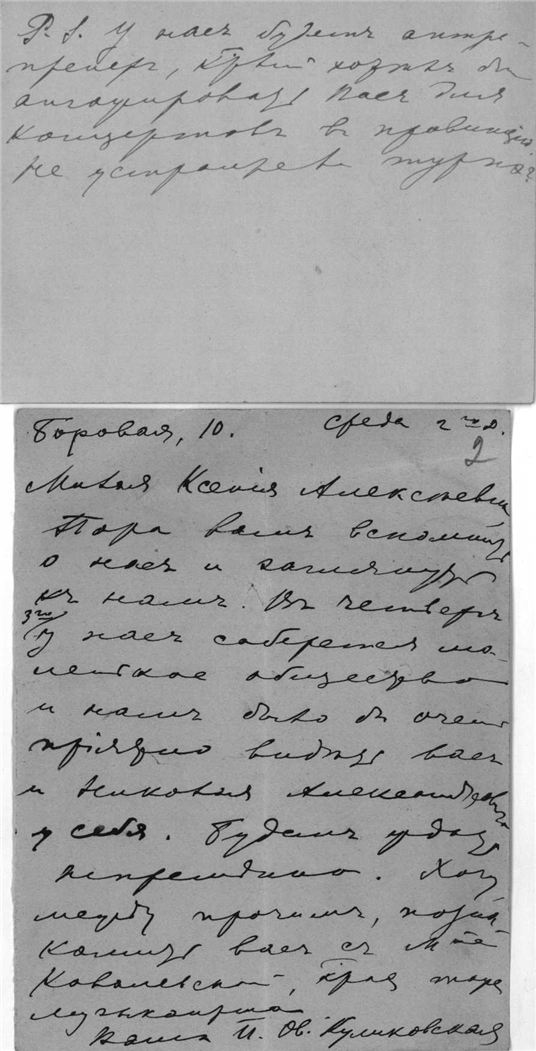 P.S. У насъ будетъ антре-
пренеръ, кᵒрый хотѣлъ бы
ангажировать васъ для
концертовъ въ провинціи.
Не устроите ли турнэ?
Боровая, 10. Среда 2ᵍᵒ д.
2
Милая Ксенія Алексѣевна,
Пора вамъ вспомнить
о насъ и заглянуть
къ намъ. Въ четвергъ
3ᵍᵒ
у насъ соберется ма-
ленькое общество
и намъ было бъ очень
пріятно видѣть васъ
и Николая Александровича
у себя. Будемъ ждать
непремѣнно. Хочу
между прочимъ, позна-
комить васъ съ Mᵐᵉ
Ковалевской, кᵒрая тоже
музыкантша
Ваша И. Ов. Куликовская